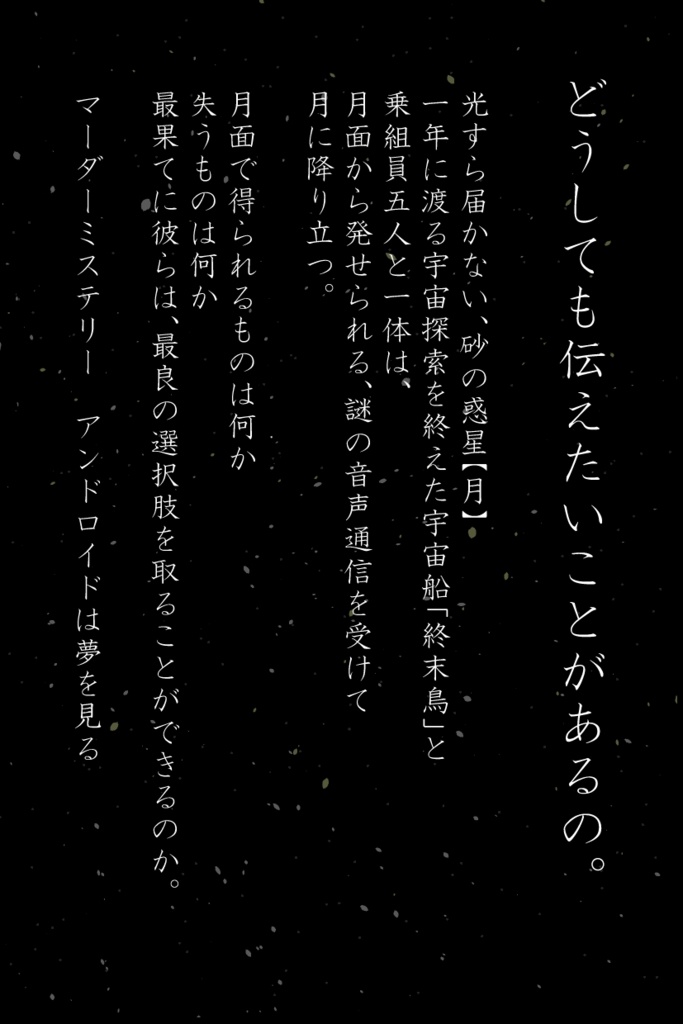 どうしても伝えたいことがあるの。
光すら届かない、砂の惑星【月】
一年に渡る宇宙探索を終えた宇宙船「終末鳥」と
乗組員五人と一体は、
月面から発せられる、謎の音声通信を受けて
月に降り立つ。
月面で得られるものは何か
失うものは何か
最果てに彼らは、最良の選択肢を取ることができるのか。
マーダーミステリー　アンドロイドは夢を見る